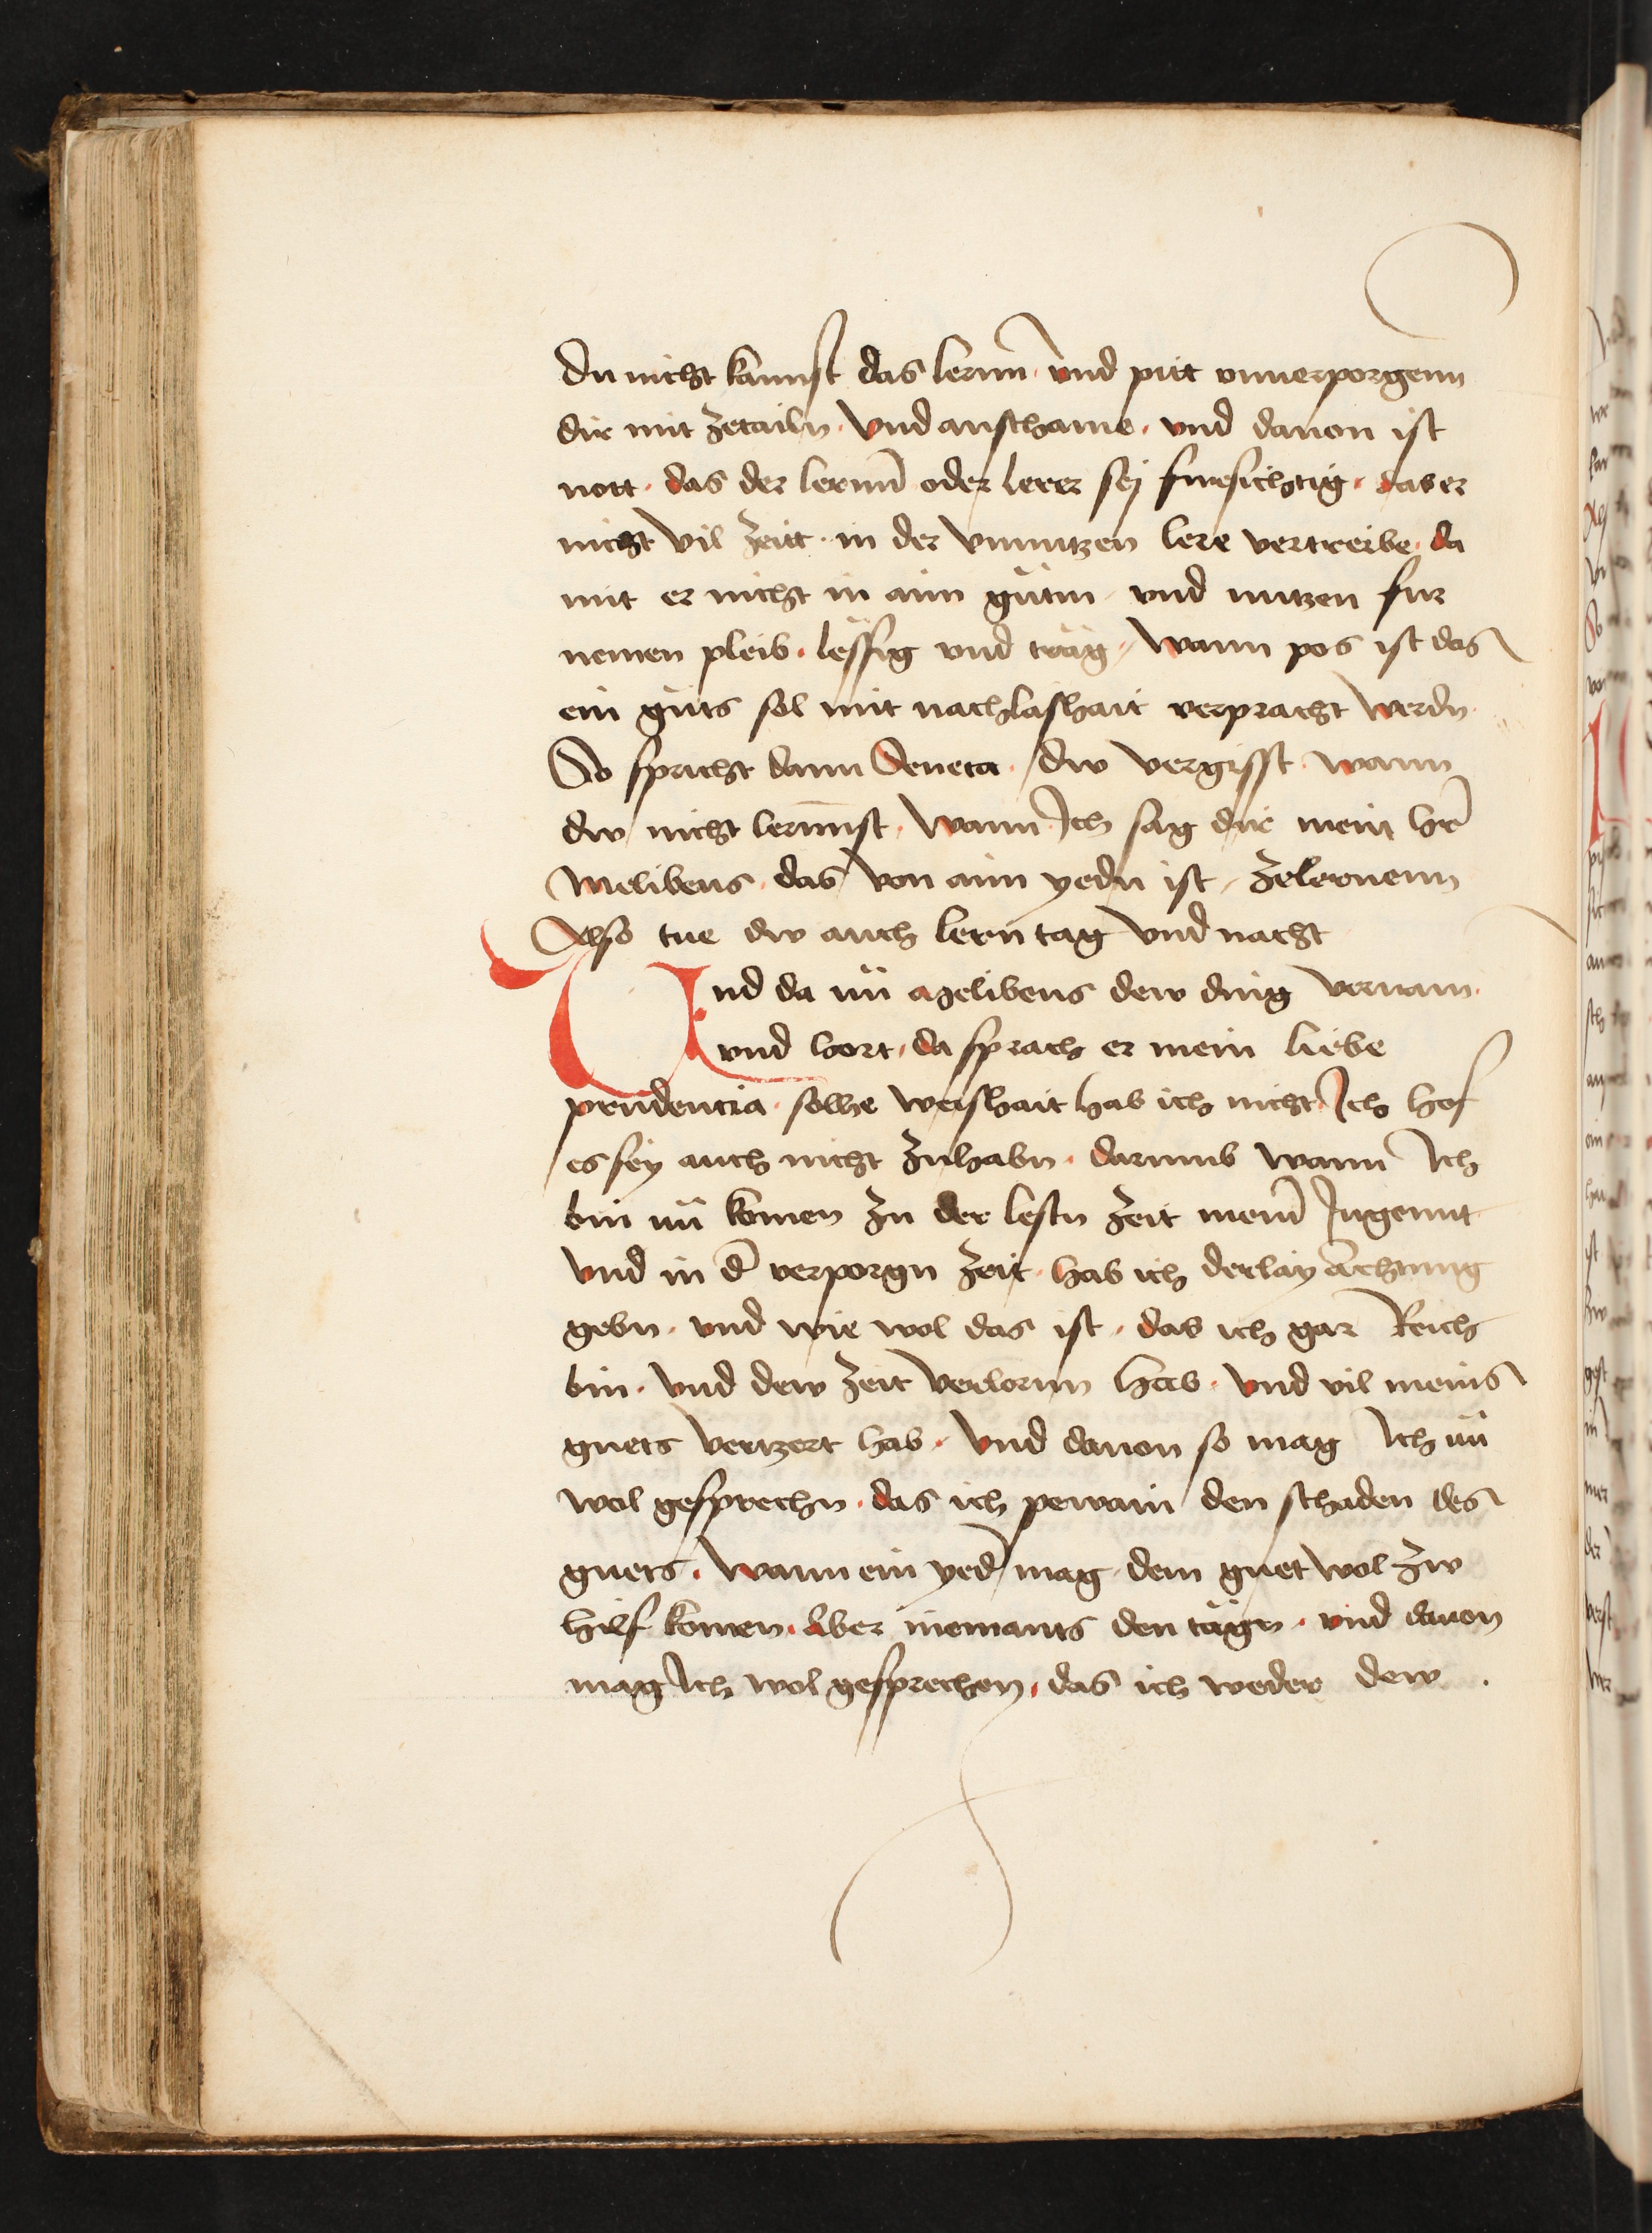 du nicht kannst das lernn̄ · vnd pitt vnuerporgenn
dir mit zetailn · Vnd anschame · vnd dauon ist
nott · das der lernn̄ oder lerer sej fursichtig · das er
nicht vil zeitt · in der vnnutzen lere vertreibe · da
mit er nicht in ainn gu̇tin vnd nutzen fur
nemen pleib · lëssig vnd träg · wann pos ist das
ein gu̇ts sol mit nachlashait verpracht werdn
So spricht dann Seneca · dw vergisst · wann
dw nicht lernnst · wann Jch sag dir mein hr̄
Melibeus · das von ainn yedn ist · zelernenn
Also tue dw auch lern tag vnd nacht
Vnd da nü Melibeus dew ding vernam ·
vnd hort · da sprach er mein liebe
prudencia · solhe weishait hab ich nicht Jch hof
es sey auch nicht zuhabn · darumb wann Jch
bin nü komen zu der lestn zeit mein̄ Jugennt
vnd in d̄ verporgn zeit · hab ich derlay achtung
gebn · vnd wie wol das ist · das ich gar Reich
bin · vnd dew zeit verlornn hab · vnd vil meins
guets vertzert hab · vnd dauon so mag Jch nü
wol gesprechn · das ich pewain den schaden des
guets · wann ein yed̄ mag dem guet wol zw
hilf komen · Aber niemants den tägn · vnd dauon
mag Jch wol gesprechen · das ich weder dew ·